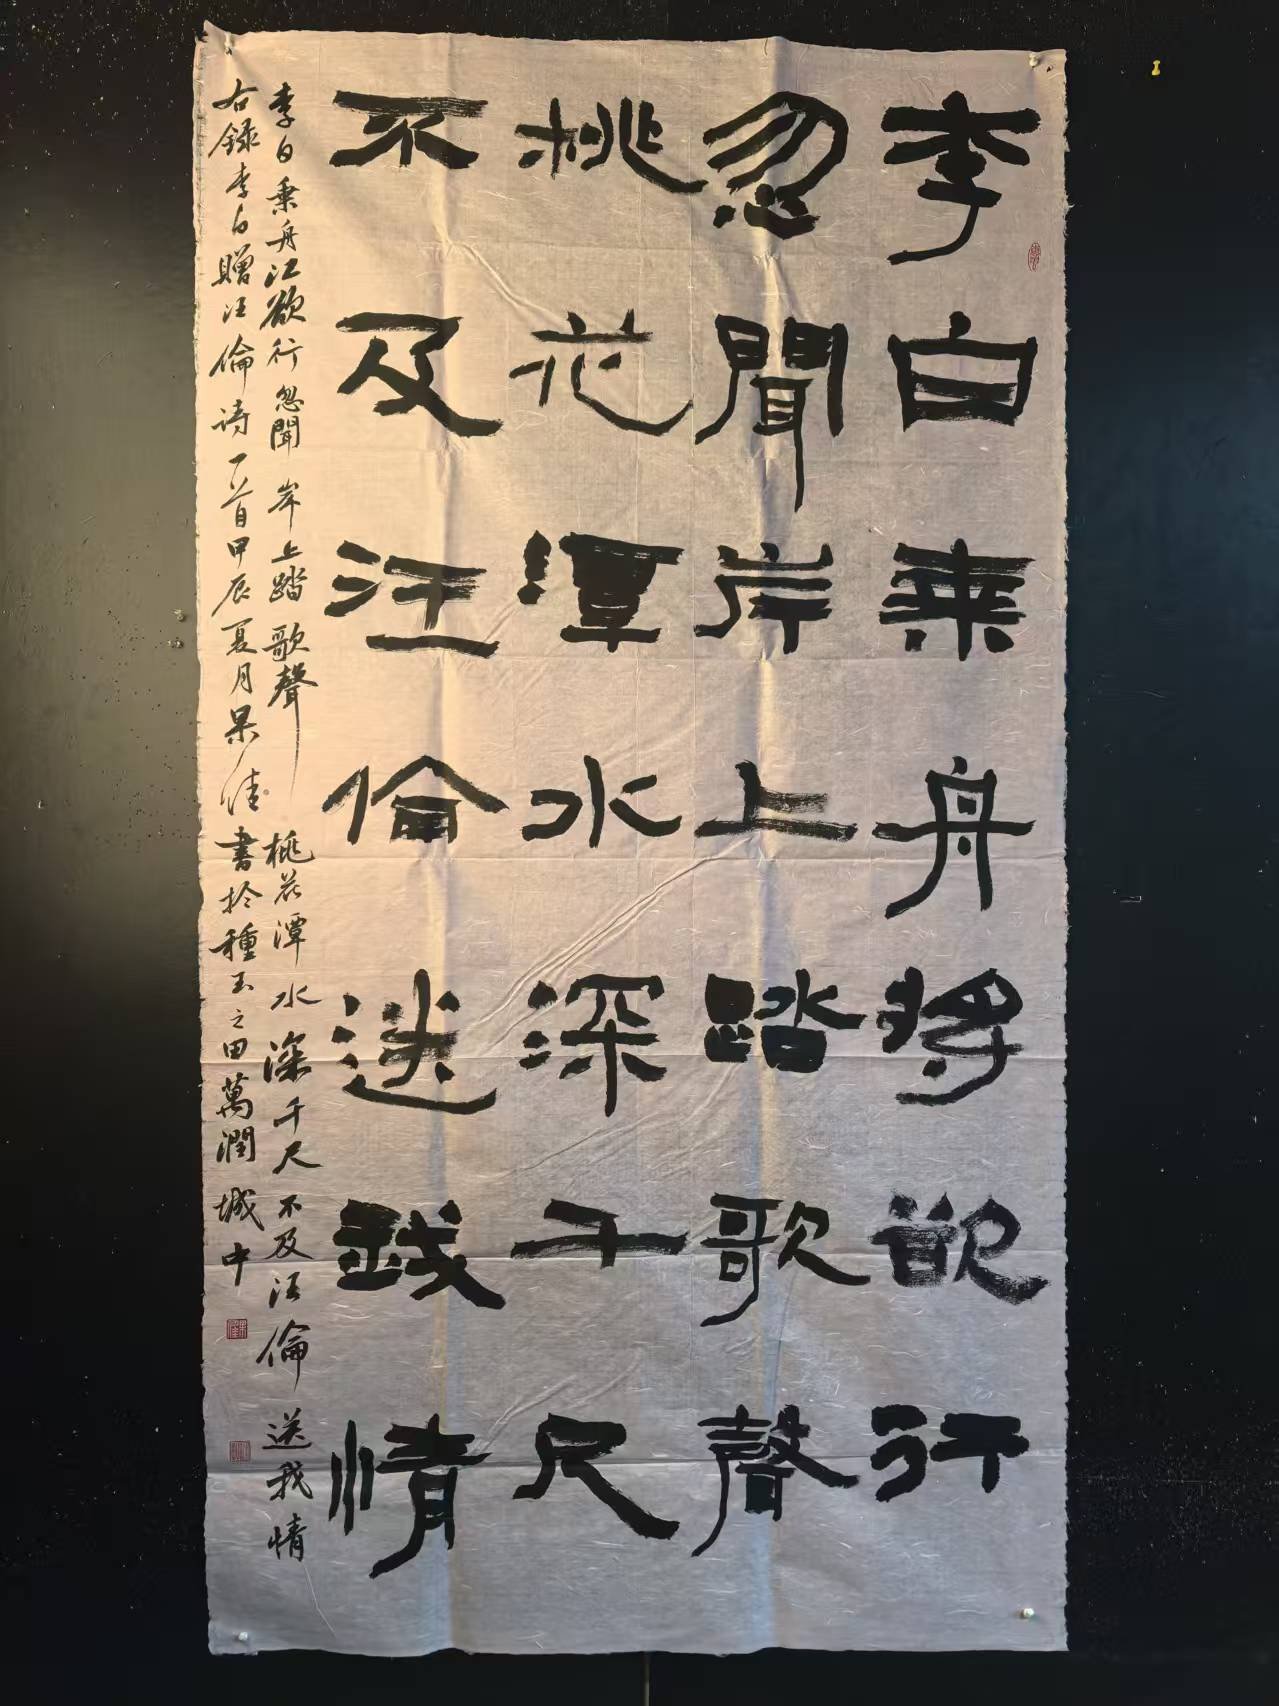 李白乘舟将欲行
忽聞岸上踏歌聲
桃花潭水深千尺
不及汪倫送我情
李白乘舟江欲行忽聞岸上踏歌聲桃花潭水深千尺不及汪倫送我情
右録李白贈汪倫诗一首甲辰夏月杲清書於種玉之田萬潤城中